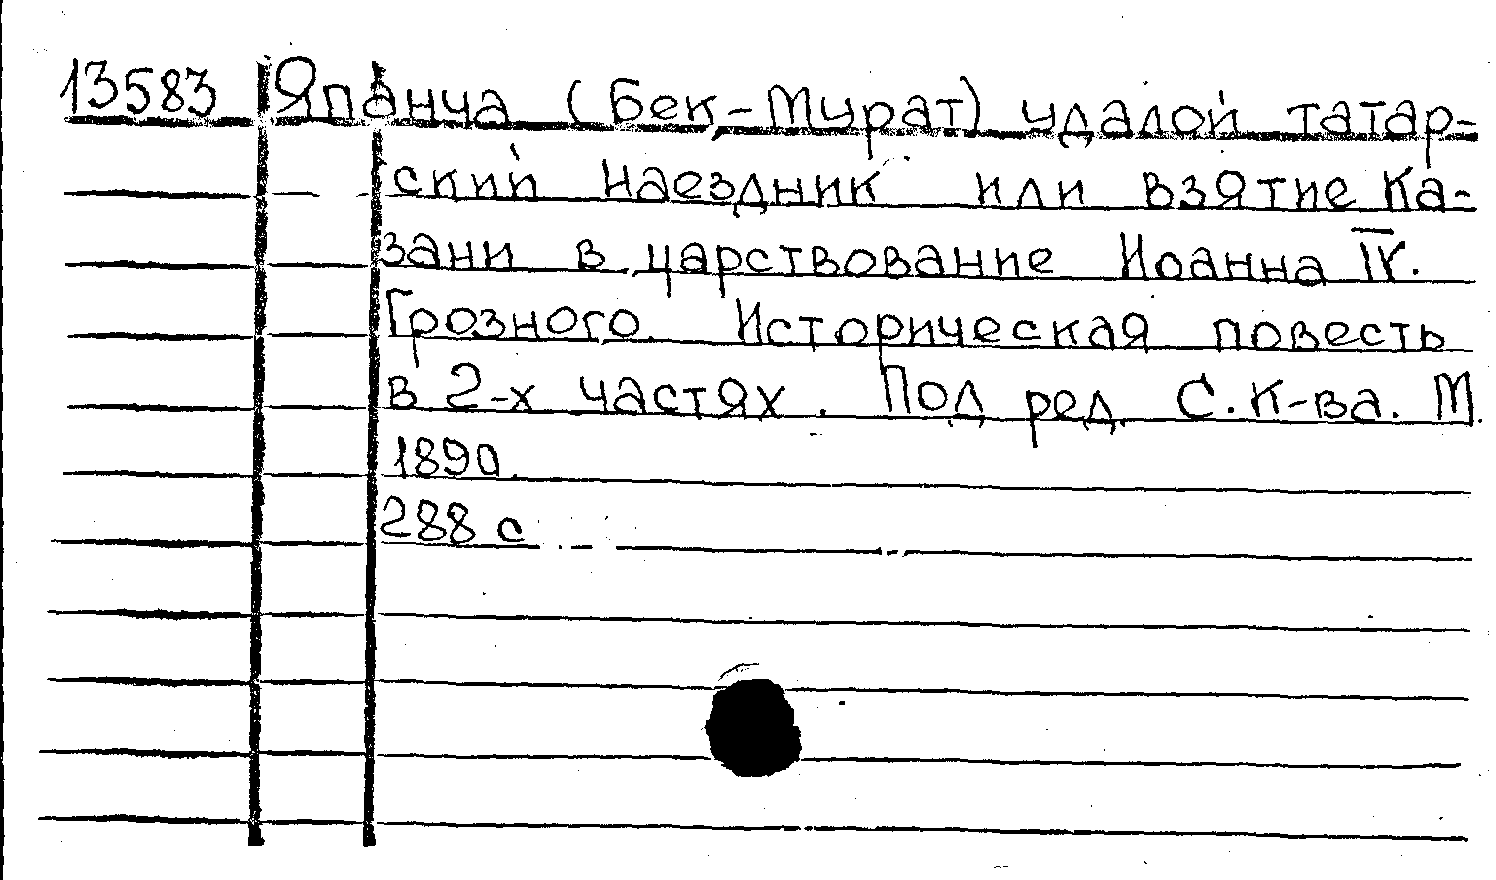 13583 Япанча (Бек-Мурат) удалой татар-
ский наездник или взятие Ка-
зани в царствование Иоанна IV.
Грозного. Историческая повесть
в 2-х частях. Под ред. С. К-ва. М.
1890.
288 с